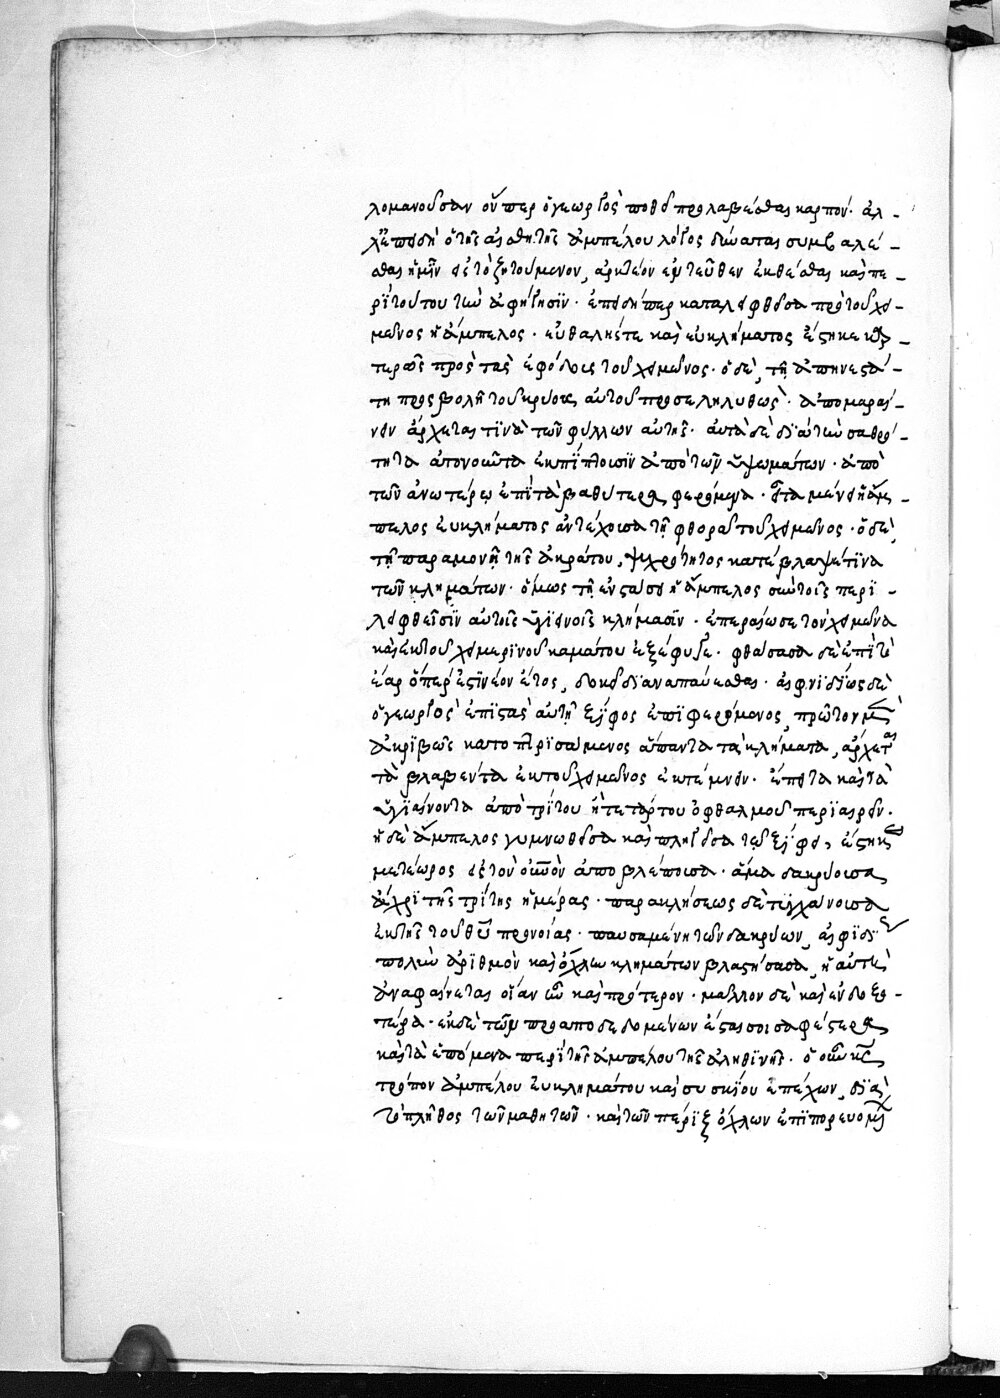 λομανοῦσαν οὕπερ ὁ γεωργὸς ποθεῖ προλαβέσθαι καρπόν· ἀλ-
λ' ἐπειδὴ ὁ τῆς αἰσθητῆς ἀμπέλου λόγος δύναται συμβαλέ-
σθαι ἡμῖν εἰς τὸ ζητούμενον, ἀρκτέον ἐντεῦθεν ἐκθέσθαι καὶ πε-
ρὶ τούτου τὴν ἀφήγησιν· ἐπειδήπερ καταλειφθεῖσα πρὸ τοῦ χει-
μῶνος ἡ ἄμπελος· εὐθαλής τε καὶ εὐκλήματος ἕστηκε καρ-
τερῶς πρὸς τὰς ἐφόδους τοῦ χειμῶνος· ὁ δὲ, τῇ ἀπηνεστά-
τῃ προσβολῇ τοῦ κρύους αὐτοῦ προσεληλυθὼς· ἀπομαραί-
νειν ἄρχεται τινὰ τῶν φύλλων αὐτῆς· αὐτὰ δὲ δι' αὐτὴν σαθρό-
τητα ἀπονοοῦντα ἐκπίπτουσιν ἀπὸ τῶν ὑψωμάτων· ἀπὸ
τῶν ἀνωτέρω ἐπὶ τὰ βαθύτερα φερόμενα· εἶτα μένει ἡ ἄμ-
πελος εὐκλήματος ἀντέχουσα τῇ φθορᾷ τοῦ χειμῶνος· ὁ δὲ,
τῇ παραμονῇ τῆς ἀκράτου, ψυχρότητος κατέβλαψέ τινα
τῶν κλημάτων· ὅμως τῇ ἐνστάσει ἡ ἄμπελος σὺν τοῖς περι-
λειφθεῖσιν αὐτοῖς ὑγιεινοῖς κλήμασιν· ἐπεραίωσε τὸν χειμῶνα
καὶ ἐκ τοῦ χειμερινοῦ καμάτου ἐξέφυγε· φθάσασα δὲ ἐπὶ τὸ
ἔαρ ὅπερ ἐστὶ νέον ἔτος, δοκεῖ διαναπαύεσθαι· αἰφνιδίως δὲ
ὁ γεωργὸς ἐπιστὰς αὐτῇ ξίφος ἐπιφερόμενος, πρῶτον μὲν
ἀκριβῶς κατοπτρισάμενος ἅπαντα τὰ κλήματα, ἄρχεται
τὰ βλαβέντα ἐκ τοῦ χειμῶνος ἐκτέμνειν· ἔπειτα καὶ τὰ
ὑγιαίνοντα ἀπὸ τρίτου ἢ τετάρτου ὀφθαλμοῦ περιαιρεῖν·
ἡ δὲ ἄμπελος γυμνωθεῖσα καὶ πληγεῖσα τῷ ξίφει, ἕστηκε
μετέωρος εἰς τὸν οὐρανὸν ἀποβλέπουσα· ἅμα δακρύουσα
ἄχρι τῆς τρίτης ἡμέρας· παρακλήσεως δὲ τυγχάνουσα
ἐκ τῆς τοῦ θυ προνοίας· παυσαμένη τῶν δακρύων, αἰφνιδίως
πολὺν ἀριθμὸν καὶ ὄχλον κλημάτων βλαστήσασα, ἡ αὐτὴ
ἀναφαίνεται οἵαν ὢν καὶ πρότερον· μᾶλλον δὲ καὶ ἐνδοξο-
τέρα· ἐκ δὲ τῶν προαποδεδομένων ἔσται σοι σαφέστερα
καὶ τὰ ἑπόμενα περὶ τῆς ἀμπέλου τῆς ἀληθινῆς· ὁ οὖν κς
τρόπον ἀμπέλου εὐκλημάτου καὶ συσκίου ἐπέχων, διὰ
τὸ πλῆθος τῶν μαθητῶν· καὶ τῶν πέριξ ὄχλων ἐπιπορευομένων